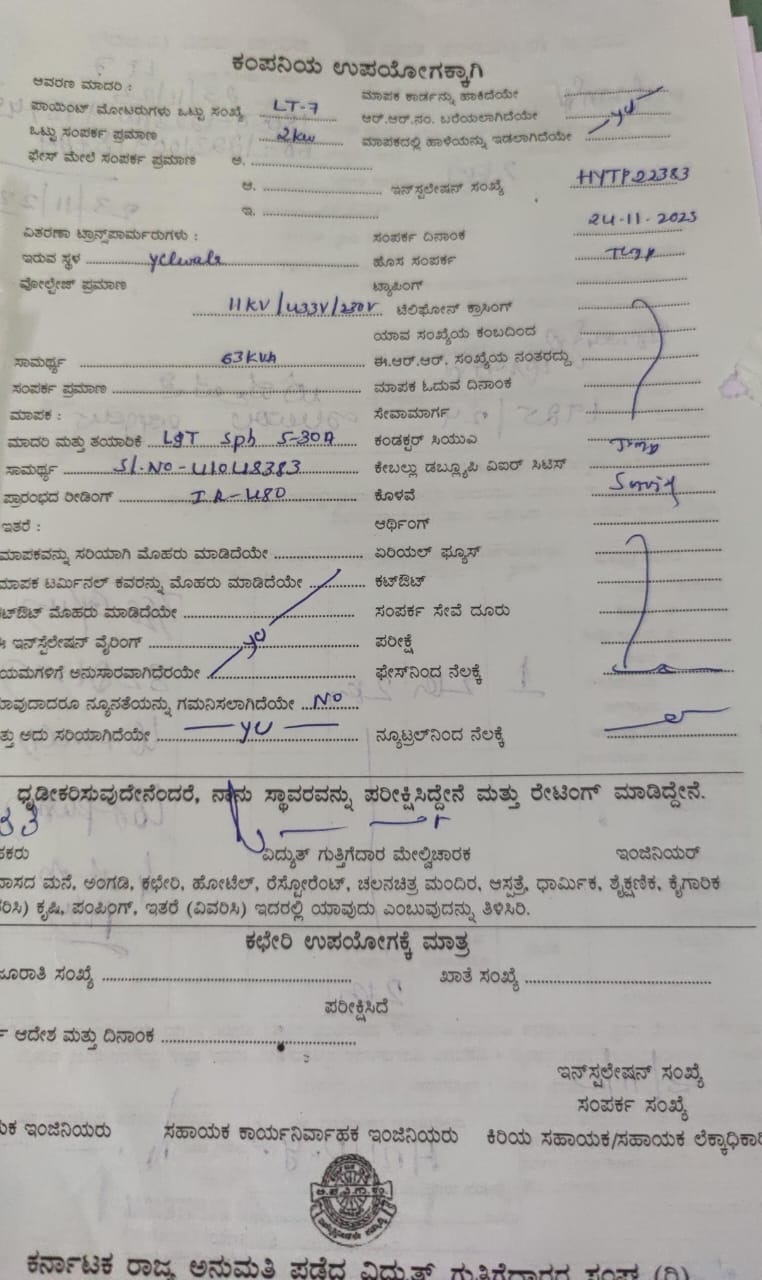 ಕಂಪನಿಯ ಉಪಯೋಗಕ್ಕಾಗಿ
ಆವರಣ ಮಾದರಿ :
ಮಾಪಕ ಕಾರ್ಡನ್ನು ಹಾಕಿದೆಯೇ
ಪಾಯಿಂಟ್ ಮೋಟರುಗಳು ಒಟ್ಟು ಸಂಖ್ಯೆ LT-7
ಆರ್.ಆರ್.ನಂ. ಬರೆಯಲಾಗಿದೆಯೇ
ಒಟ್ಟು ಸಂಪರ್ಕ ಪ್ರಮಾಣ 2kw
ಮಾಪಕದಲ್ಲಿ ಹಾಳೆಯನ್ನು ಇಡಲಾಗಿದೆಯೇ
ಫೇಸ್ ಮೇಲೆ ಸಂಪರ್ಕ ಪ್ರಮಾಣ ಅ.
ಆ. ಇನ್‌ಸ್ಟಲೇಷನ್ ಸಂಖ್ಯೆ HYTP22383
ಇ.
ವಿತರಣಾ ಟ್ರಾನ್ಸ್‌ಪಾರ್ಮರುಗಳು : ಸಂಪರ್ಕ ದಿನಾಂಕ 24-11-2023
ಇರುವ ಸ್ಥಳ ಹೊಸ ಸಂಪರ್ಕ
ವೋಲ್ಟೇಜ್ ಪ್ರಮಾಣ ಟ್ಯಾಪಿಂಗ್
11KV/433V/230V ಟೆಲಿಫೋನ್ ಕ್ರಾಸಿಂಗ್
ಯಾವ ಸಂಖ್ಯೆಯ ಕಂಬದಿಂದ
ಸಾಮರ್ಥ್ಯ 63KVA ಈ.ಆರ್.ಆರ್. ಸಂಖ್ಯೆಯ ನಂತರದ್ದು
ಸಂಪರ್ಕ ಪ್ರಮಾಣ ಮಾಪಕ ಓದುವ ದಿನಾಂಕ
ಮಾಪಕ : ಸೇವಾಮಾರ್ಗ
ಮಾದರಿ ಮತ್ತು ತಯಾರಿಕೆ L&T Sph 5-30A ಕಂಡಕ್ಟರ್ ಸಿಯುಎ
ಸಾಮರ್ಥ್ಯ Sl.No-41048383 ಕೇಬಲ್ಲು ಡಬ್ಲ್ಯೂಪಿ ವಿಐರ್ ಸಿಟಿಸ್
ಪ್ರಾರಂಭದ ರೀಡಿಂಗ್ IR-480 ಕೊಳವೆ
ಇತರೆ : ಆರ್ಥಿಂಗ್
ಮಾಪಕವನ್ನು ಸರಿಯಾಗಿ ಮೊಹರು ಮಾಡಿದೆಯೇ ಏರಿಯಲ್ ಫ್ಯೂಸ್
ಮಾಪಕ ಟರ್ಮಿನಲ್ ಕವರನ್ನು ಮೊಹರು ಮಾಡಿದೆಯೇ ಕಟ್‌ಔಟ್
ಕಟ್‌ಔಟ್ ಮೊಹರು ಮಾಡಿದೆಯೇ ಸಂಪರ್ಕ ಸೇವೆ ದೂರು
ಇನ್‌ಸ್ಪೆಲೇಷನ್ ವೈರಿಂಗ್ ಪರೀಕ್ಷೆ
ಯಮಗಳಿಗೆ ಅನುಸಾರವಾಗಿದೆರಯೇ ಫೇಸ್‌ನಿಂದ ನೆಲಕ್ಕೆ
ಯಾವುದಾದರೂ ನ್ಯೂನತೆಯನ್ನು ಗಮನಿಸಲಾಗಿದೆಯೇ NO
ತ್ತು ಅದು ಸರಿಯಾಗಿದೆಯೇ ನ್ಯೂಟ್ರಲ್‌ನಿಂದ ನೆಲಕ್ಕೆ
ಧೃಡೀಕರಿಸುವುದೇನೆಂದರೆ, ನಾನು ಸ್ಥಾವರವನ್ನು ಪರೀಕ್ಷಿಸಿದ್ದೇನೆ ಮತ್ತು ರೇಟಿಂಗ್ ಮಾಡಿದ್ದೇನೆ.
ವಿದ್ಯುತ್ ಗುತ್ತಿಗೆದಾರ ಮೇಲ್ವಿಚಾರಕ ಇಂಜಿನಿಯರ್
ವಾಸದ ಮನೆ, ಅಂಗಡಿ, ಕಛೇರಿ, ಹೋಟೆಲ್, ರೆಸ್ಟೋರೆಂಟ್, ಚಲನಚಿತ್ರ ಮಂದಿರ, ಆಸ್ಪತ್ರೆ, ಧಾರ್ಮಿಕ, ಶೈಕ್ಷಣಿಕ, ಕೈಗಾರಿಕ
ರಿಸಿ) ಕೃಷಿ, ಪಂಪಿಂಗ್, ಇತರೆ (ವಿವರಿಸಿ) ಇದರಲ್ಲಿ ಯಾವುದು ಎಂಬುವುದನ್ನು ತಿಳಿಸಿರಿ.
ಕಛೇರಿ ಉಪಯೋಗಕ್ಕೆ ಮಾತ್ರ
ಜೂರಾತಿ ಸಂಖ್ಯೆ ಖಾತೆ ಸಂಖ್ಯೆ
ಪರೀಕ್ಷಿಸಿದೆ
ಆದೇಶ ಮತ್ತು ದಿನಾಂಕ
ಇನ್‌ಸ್ಪಲೇಷನ್ ಸಂಖ್ಯೆ
ಸಂಪರ್ಕ ಸಂಖ್ಯೆ
ಯಕ ಇಂಜಿನಿಯರು ಸಹಾಯಕ ಕಾರ್ಯನಿರ್ವಾಹಕ ಇಂಜಿನಿಯರು ಕಿರಿಯ ಸಹಾಯಕ/ಸಹಾಯಕ ಲೆಕ್ಕಾಧಿಕಾರಿ
ಕರ್ನಾಟಕ ರಾಜ್ಯ ಅನುಮತಿ ಪಡೆದ ವಿದ್ಯುತ್ ಗುತ್ತಿಗೆದಾರರ ಸಂಘ (ರಿ)